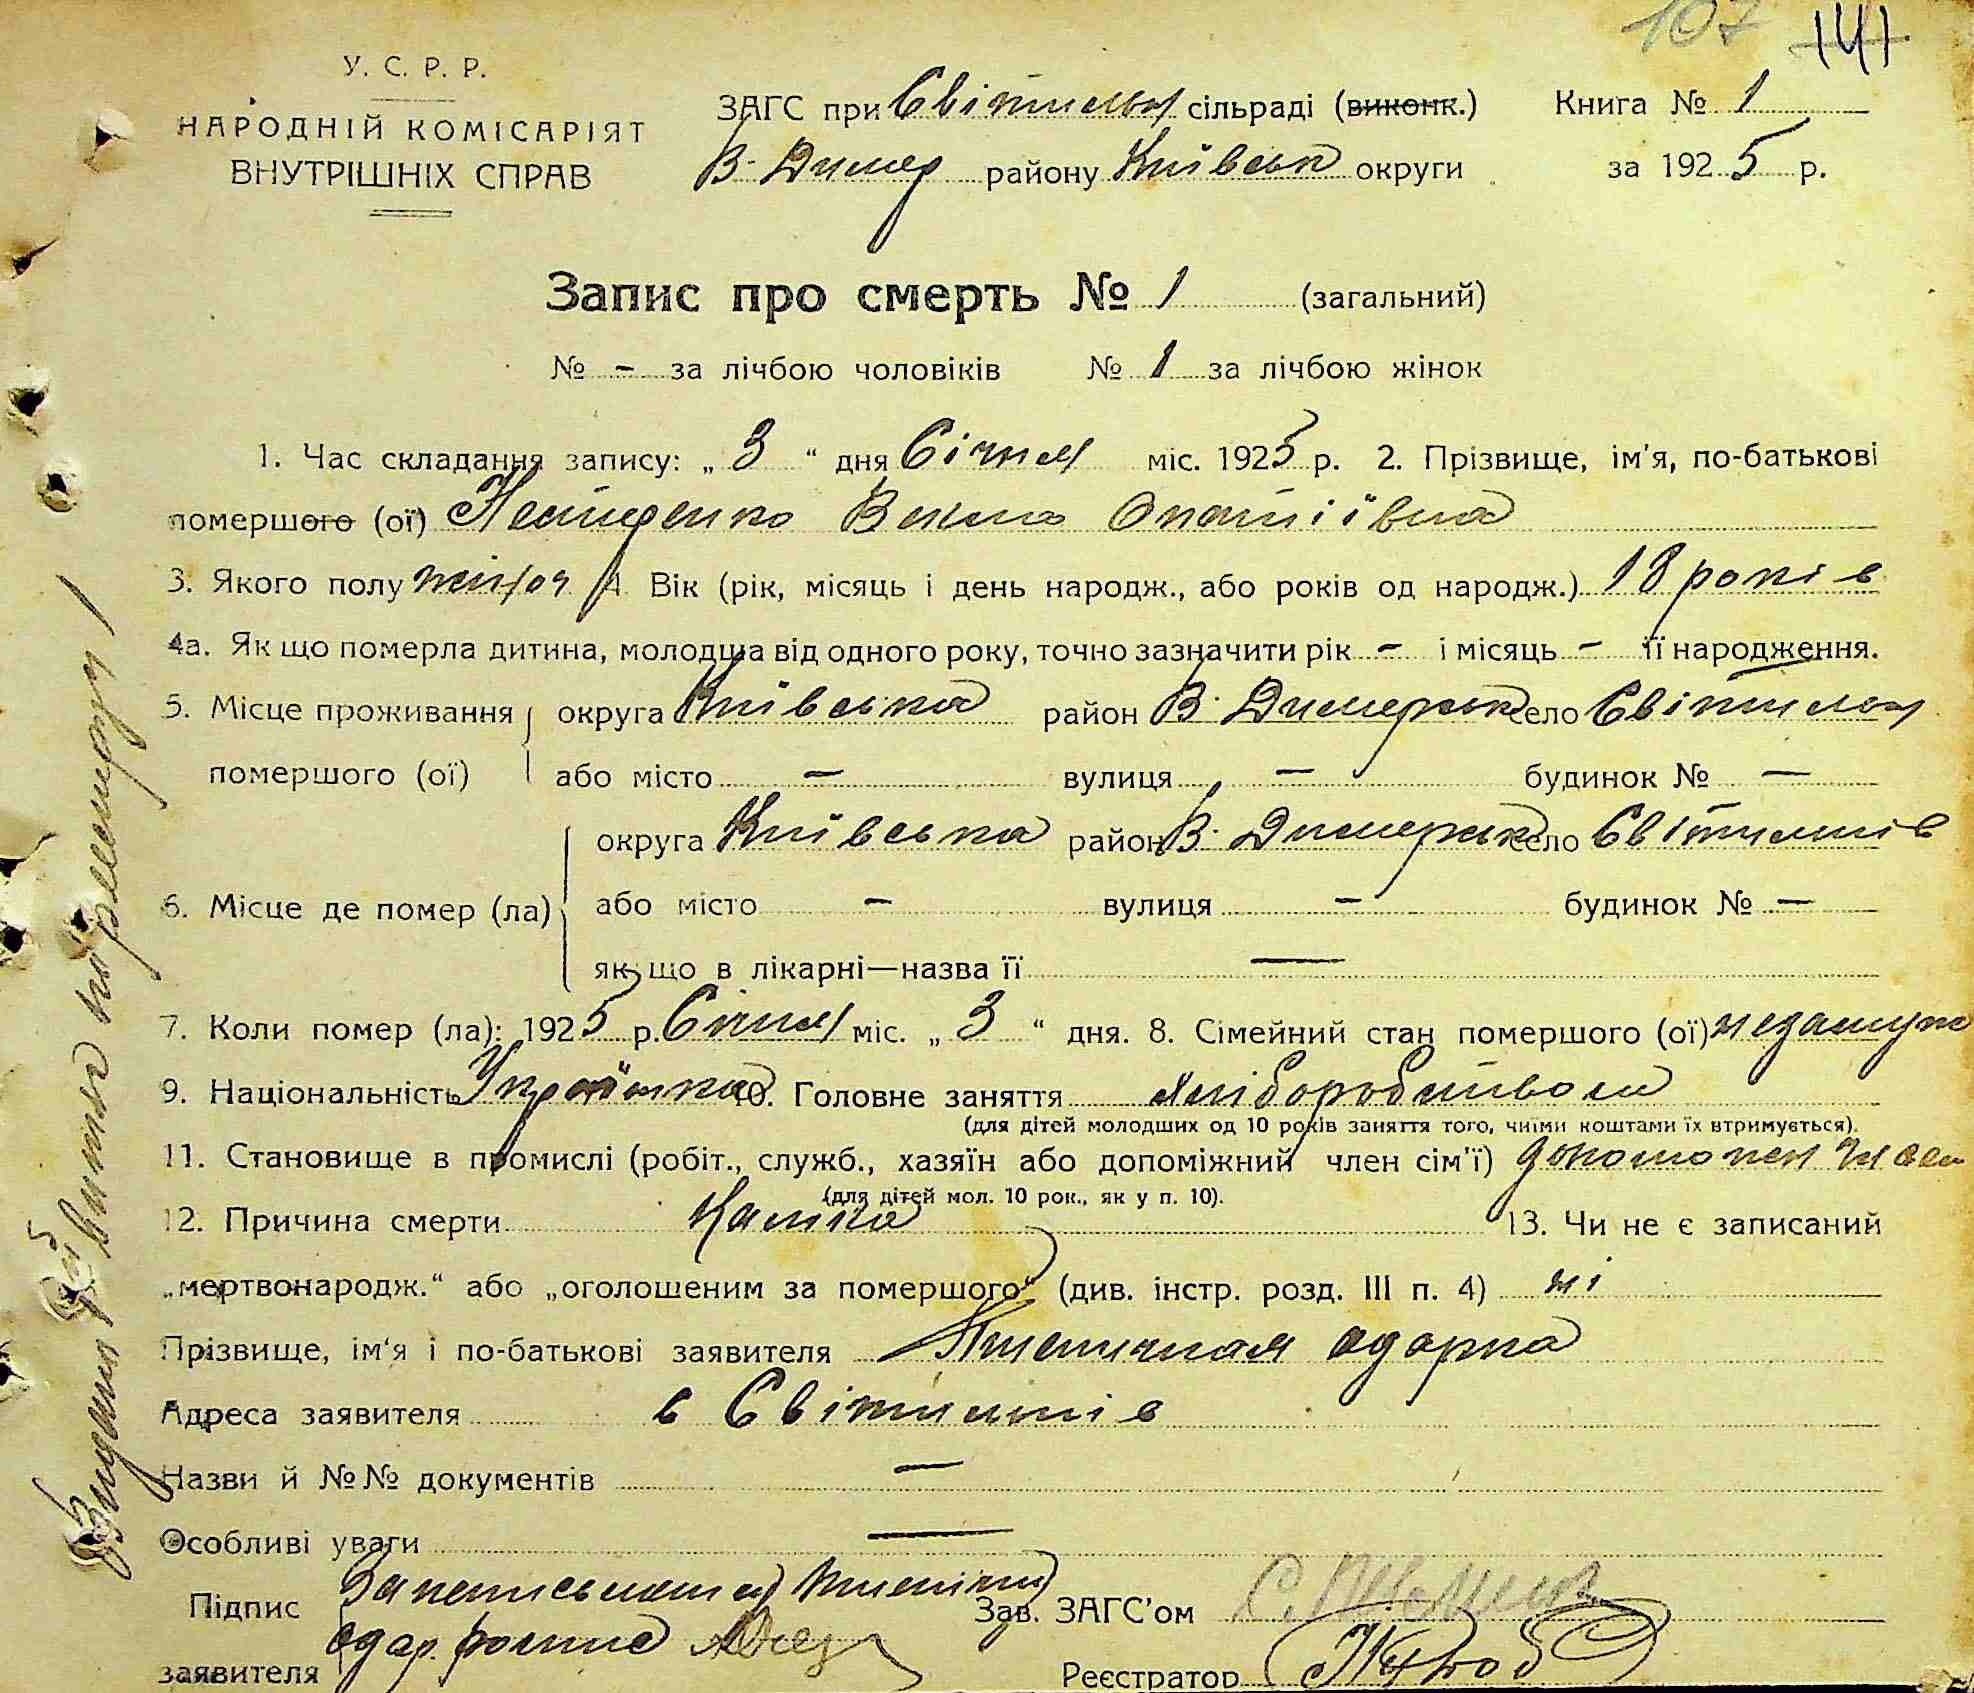 107 141
У. С. Р. Р.
НАРОДНІЙ КОМІСАРІЯТ
ВНУТРІШНІХ СПРАВ
ЗАГС при Світильн сільраді (виконк.) Книга № 1
В-Димер району Київськ округи за 1925 р.
Запис про смерть № 1 (загальний)
№ - за лічбою чоловіків № 1 за лічбою жінок
1. Час складання запису: „ 3 “ дня Січня міс. 1925 р. 2. Прізвище, ім'я, по-батькові
помершого (ої)
3. Якого полу жіноч 4. Вік (рік, місяць і день народж., або років од народж.) 18 років
4а. Як що померла дитина, молодша від одного року, точно зазначити рік - і місяць - її народження.
5. Місце проживання округа Київська район В. Димерськ село Світильн
помершого (ої) або місто — вулиця — будинок № —
округа Київська район В. Димерськ село Світильнів
6. Місце де помер (ла) або місто - вулиця - будинок № —
як що в лікарні—назва її —
7. Коли помер (ла): 1925 р. Січня міс. „ 3 “ дня. 8. Сімейний стан помершого (ої) незамуж
9. Національність Українка 10. Головне заняття хліборобством
(для дітей молодших од 10 років заняття того, чиїми коштами їх втримується).
11. Становище в промислі (робіт., служб., хазяїн або допоміжний член сім'ї)
(для дітей мол. 10 рок., як у п. 10).
12. Причина смерти Каліка 13. Чи не є записаний
„мертвонародж.“ або „оголошеним за помершого“ (див. інстр. розд. III п. 4) ні
Прізвище, ім'я і по-батькові заявителя Пшенична Одарка
Адреса заявителя в Світильнів
Назви й №№ документів —
Особливі уваги —
Підпис За неписьменну
заявителя Одар.
Зав. ЗАГС'ом
Реєстратор